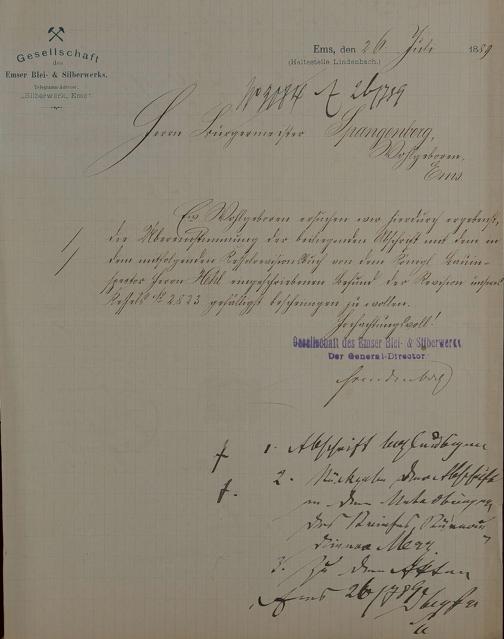 Gesellschaft
des
Emser Blei- & Silberwerks.
Telegramm-Adresse:
„Silberwerk, Ems“
Ems, den 26 Juli 1889
(Haltestelle Lindenbach.)
26/7 89
Herrn Bürgermeister Spangenberg,
Wohlgeboren,
Ems.
Ew. Wohlgeboren ersuchen wir hierdurch ergebenst,
die Übereinstimmung der beiliegenden Abschrift mit dem in
dem mitfolgenden Kesselrevisionsbuch von dem Königl. Bauin-
spector Herrn Held eingeschriebenen Befund der Revision unseres
Kessels № 2533 gefälligst bescheinigen zu wollen.
Hochachtungsvoll!
Gesellschaft des Emser Blei- & Silberwerks
Der General-Director:
Freudenberg
1. Abschrift beglaubigen
2. Rückgabe der Abschrift
des
3. Zu den Akten
Ems 26/7 89